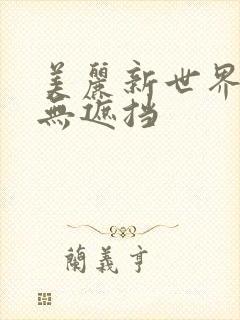 美麗新世界
無遮挡
蘭義亨